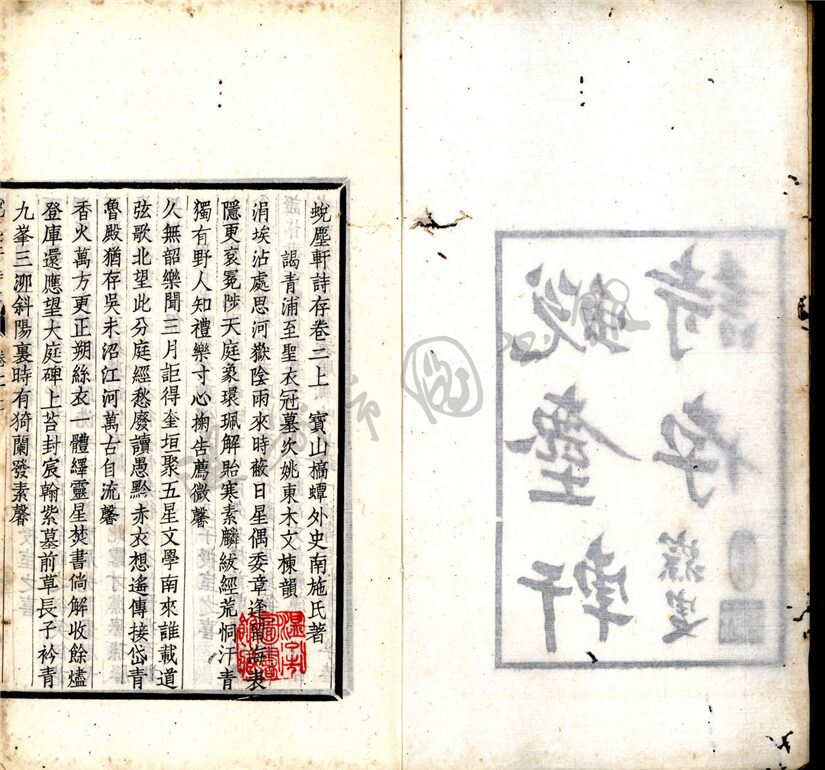 蛻塵軒
詩存
蛻塵軒詩存卷二上　寶山槁蟫外史南施氏著
謁青浦至聖衣冠墓次姚東木文棟韻
涓埃沾處思河嶽陰雨來時蔽日星偶委章逢留海表
隱更衮冕陟天庭象環珮解胎寒素麟紱經荒恫汗青
獨有野人知禮樂寸心掬告薦微馨
久無韶樂聞三月詎得奎垣聚五星文學南來誰載道
弦歌北望此分庭經愁廢讀愚黔赤衣想遙傳接岱青
魯殿猶存吳未沼江河萬古自流馨
香火萬方更正朔絲衣一體繹靈星焚書倘解收餘燼
登庫還應望大庭碑上苔封宸翰紫墓前草長子衿青
九峯三泖斜陽裏時有猗蘭發素馨